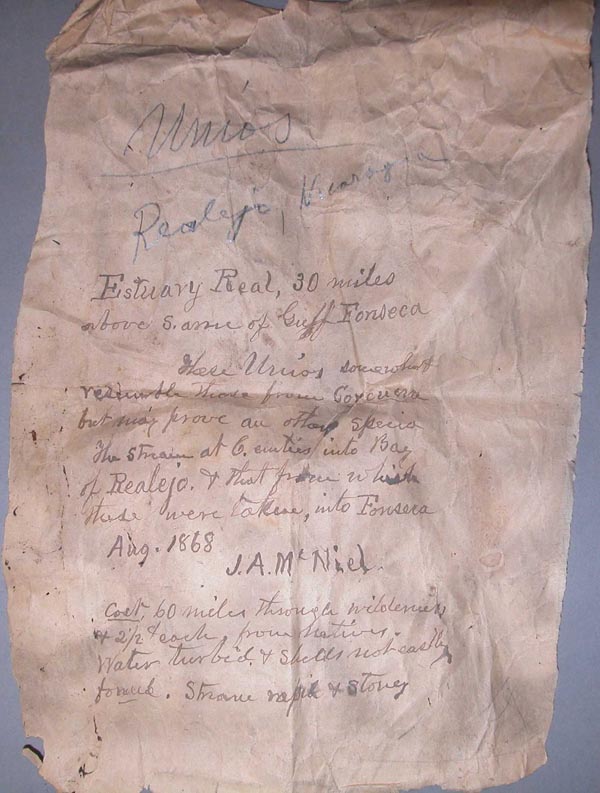 Unios
Realejo, Nicaragua
Estuary Real, 30 miles
above S. arm of Gulf Fonseca
These Unios somewhat
resemble those from
but may prove an other specis
The stream at C. emties into Bay
of Realejo. & that from which
these were taken, into Fonseca
Aug. 1868
J.A. McNiel.
Cost, 60 miles through wilderness
& 2½ each from natives.
Water turbid, & shells not easily
found. Streame rapid & stoney